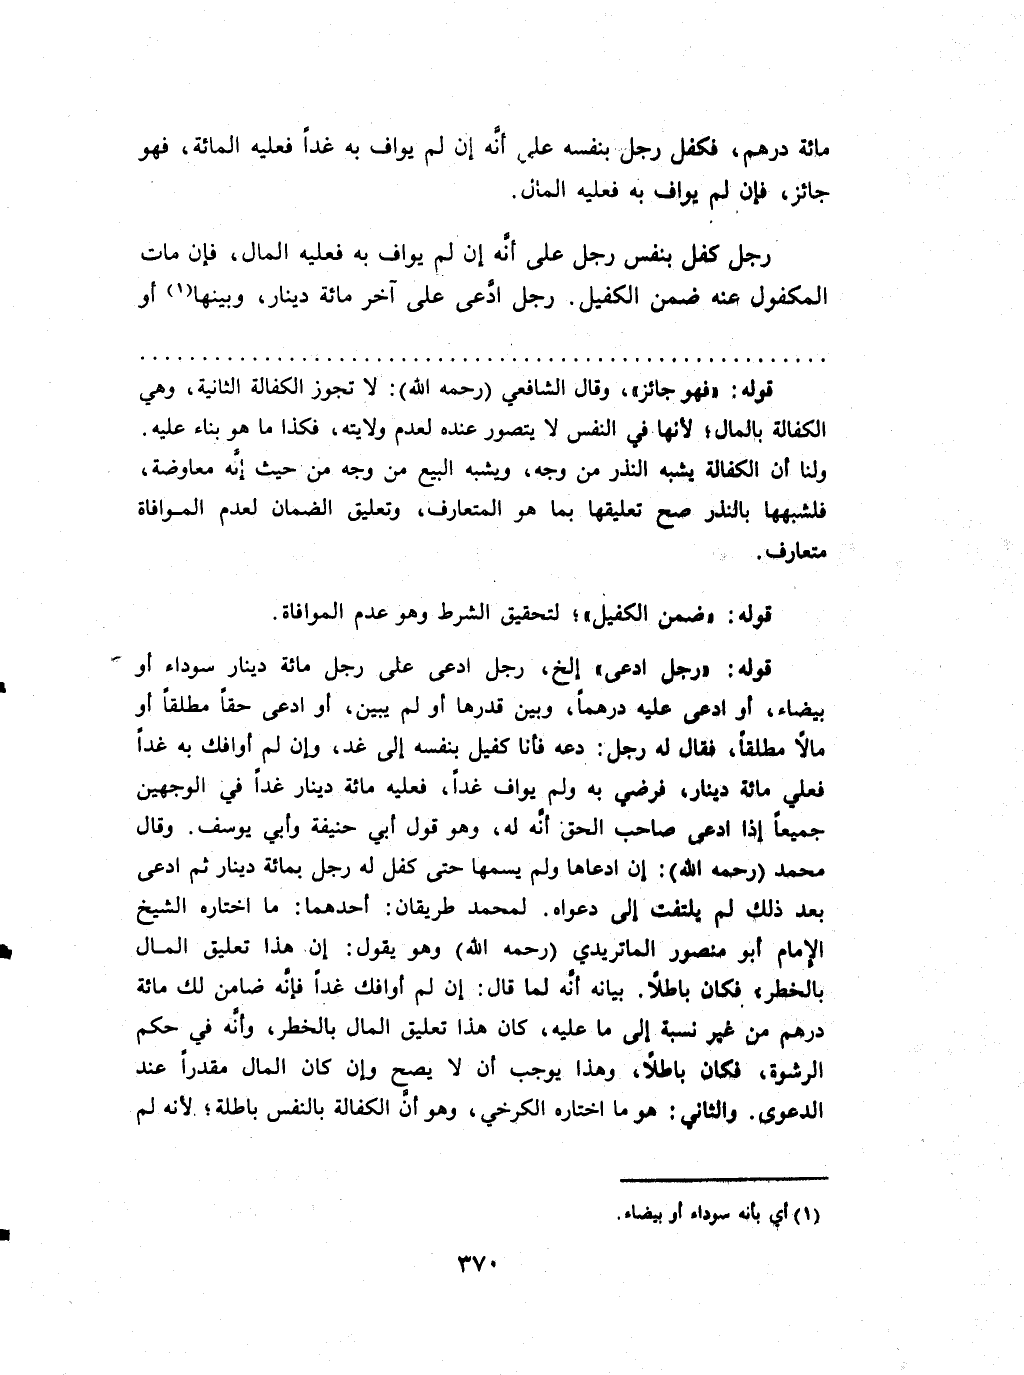 مائة درهم، فكفل رجل بنفسه على أنَّه إن لم يواف به غداً فعليه المائة، فهو
جائز، فإن لم يواف به فعليه المال.
رجل كفل بنفس رجل على أنَّه إن لم يواف به فعليه المال، فإن مات
المكفول عنه ضمن الكفيل. رجل ادَّعى على آخر مائة دينار، وبينها(١) أو
قوله: «فهو جائز»، وقال الشافعي (رحمه الله): لا تجوز الكفالة الثانية، وهي
الكفالة بالمال؛ لأنها في النفس لا يتصور عنده لعدم ولايته، فكذا ما هو بناء عليه.
ولنا أن الكفالة يشبه النذر من وجه، ويشبه البيع من وجه من حيث إنَّه معاوضة،
فلشبهها بالنذر صح تعليقها بما هو المتعارف، وتعليق الضمان لعدم المـوافاة
متعارف.
قوله: «ضمن الكفيل»؛ لتحقيق الشرط وهو عدم الموافاة.
قوله: «رجل ادعى» إلخ، رجل ادعى على رجل مائة دينار سوداء أو
بيضاء، أو ادعى عليه درهماً، وبين قدرها أو لم يبين، أو ادعى حقاً مطلقاً أو
مالًا مطلقاً، فقال له رجل: دعه فأنا كفيل بنفسه إلى غد، وإن لم أوافك به غداً
فعلي مائة دينار، فرضي به ولم يواف غداً، فعليه مائة دينار غداً في الوجهين
جميعاً إذا ادعى صاحب الحق أنَّه له، وهو قول أبي حنيفة وأبي يوسف. وقال
محمد (رحمه الله): إن ادعاها ولم يسمها حتى كفل له رجل بمائة دينار ثم ادعى
بعد ذلك لم يلتفت إلى دعواه. لمحمد طريقان: أحدهما: ما اختاره الشيخ
الإمام أبو منصور الماتريدي (رحمه الله) وهو يقول: إن هذا تعليق المـال
بالخطر، فكان باطلًا. بيانه أنَّه لما قال: إن لم أوافك غداً فإنَّه ضامن لك مائة
درهم من غير نسبة إلى ما عليه، كان هذا تعليق المال بالخطر، وأنَّه في حكم
الرشوة، فكان باطلًا، وهذا يوجب أن لا يصح وإن كان المال مقدراً عند
الدعوى. والثاني: هو ما اختاره الكرخي، وهو أنَّ الكفالة بالنفس باطلة؛ لأنه لم
(١) أي بأنه سوداء أو بيضاء.
٣٧٠